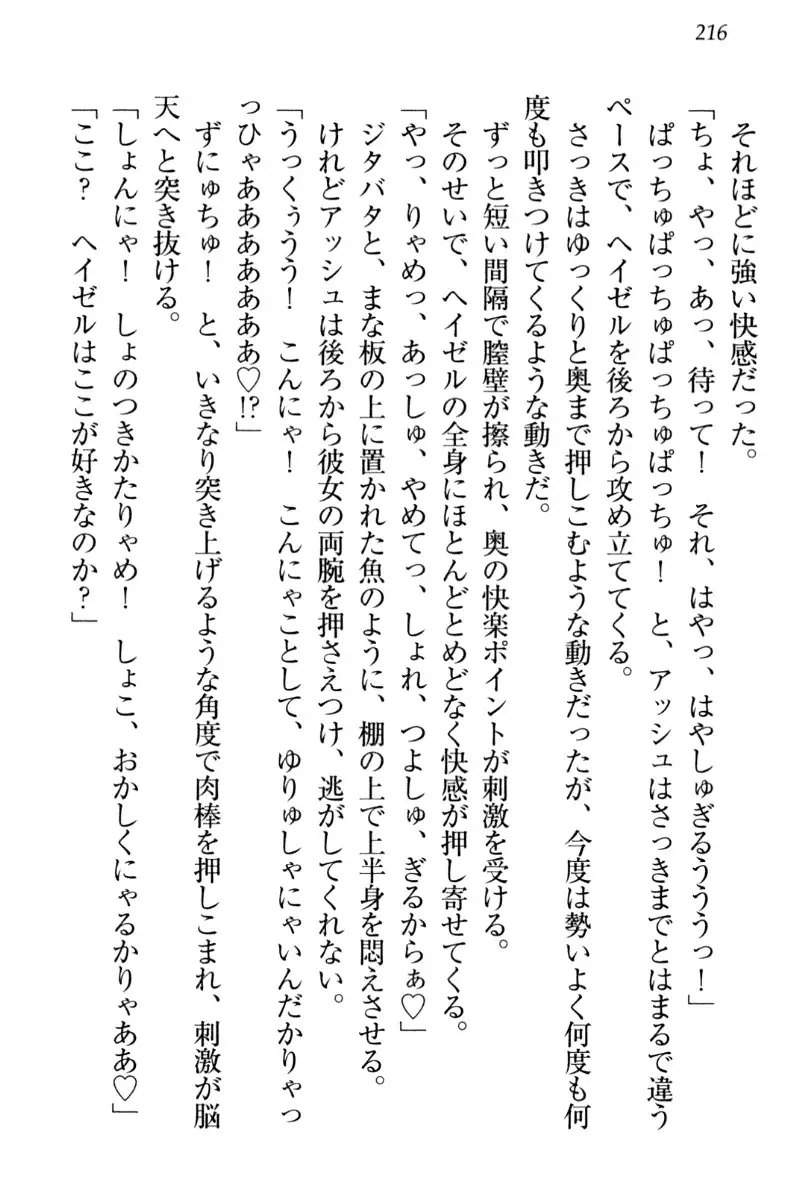 216
それほどに強い快感だった。
「ちょ、やっ、あっ、待って！　それ、はやっ、はやしゅぎるうううっ！」
ぱっちゅぱっちゅぱっちゅぱっちゅ！　と、アッシュはさっきまでとはまるで違う
ペースで、ヘイゼルを後ろから攻め立ててくる。
さっきはゆっくりと奥まで押しこむような動きだったが、今度は勢いよく何度も何
度も叩きつけてくるような動きだ。
ずっと短い間隔で膣壁が擦られ、奥の快楽ポイントが刺激を受ける。
そのせいで、ヘイゼルの全身にほとんどとめどなく快感が押し寄せてくる。
「やっ、りゃめっ、あっしゅ、やめてっ、しょれ、つよしゅ、ぎるからぁ♡」
ジタバタと、まな板の上に置かれた魚のように、棚の上で上半身を悶えさせる。
けれどアッシュは後ろから彼女の両腕を押さえつけ、逃がしてくれない。
「うっくぅうう！　こんにゃ！　こんにゃことして、ゆりゅしゃにゃいんだかりゃっ
っひゃああああああ♡!?」
ずにゅちゅ！　と、いきなり突き上げるような角度で肉棒を押しこまれ、刺激が脳
天へと突き抜ける。
「しょんにゃ！　しょのつきかたりゃめ！　しょこ、おかしくにゃるかりゃああ♡」
「ここ？　ヘイゼルはここが好きなのか？」